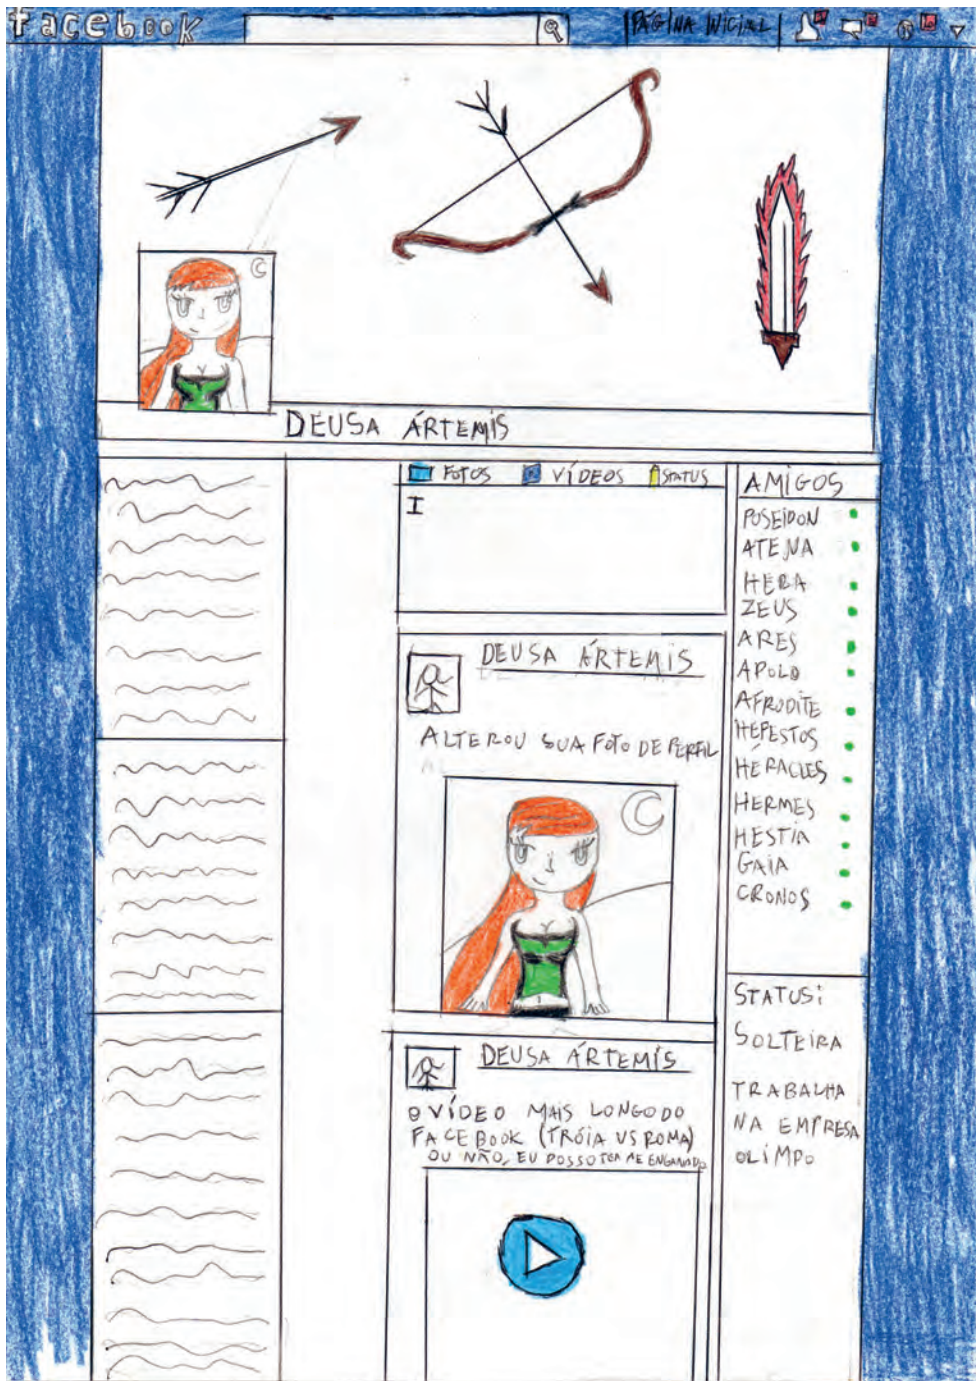 facebook
PÁGINA INICIAL
DEUSA ÁRTEMIS
FOTOS VÍDEOS STATUS
I
DEUSA ÁRTEMIS
ALTEROU SUA FOTO DE PERFIL
DEUSA ÁRTEMIS
O VÍDEO MAIS LONGO DO
FACEBOOK (TRÓIA VS ROMA)
OU NÃO, EU POSSO TER ME ENGANADO
AMIGOS
POSEIDON
ATENA
HERA
ZEUS
ARES
APOLO
AFRODITE
HEPESTOS
HÉRACLES
HERMES
HESTIA
GAIA
CRONOS
STATUS:
SOLTEIRA
TRABALHA
NA EMPRESA
OLIMPO